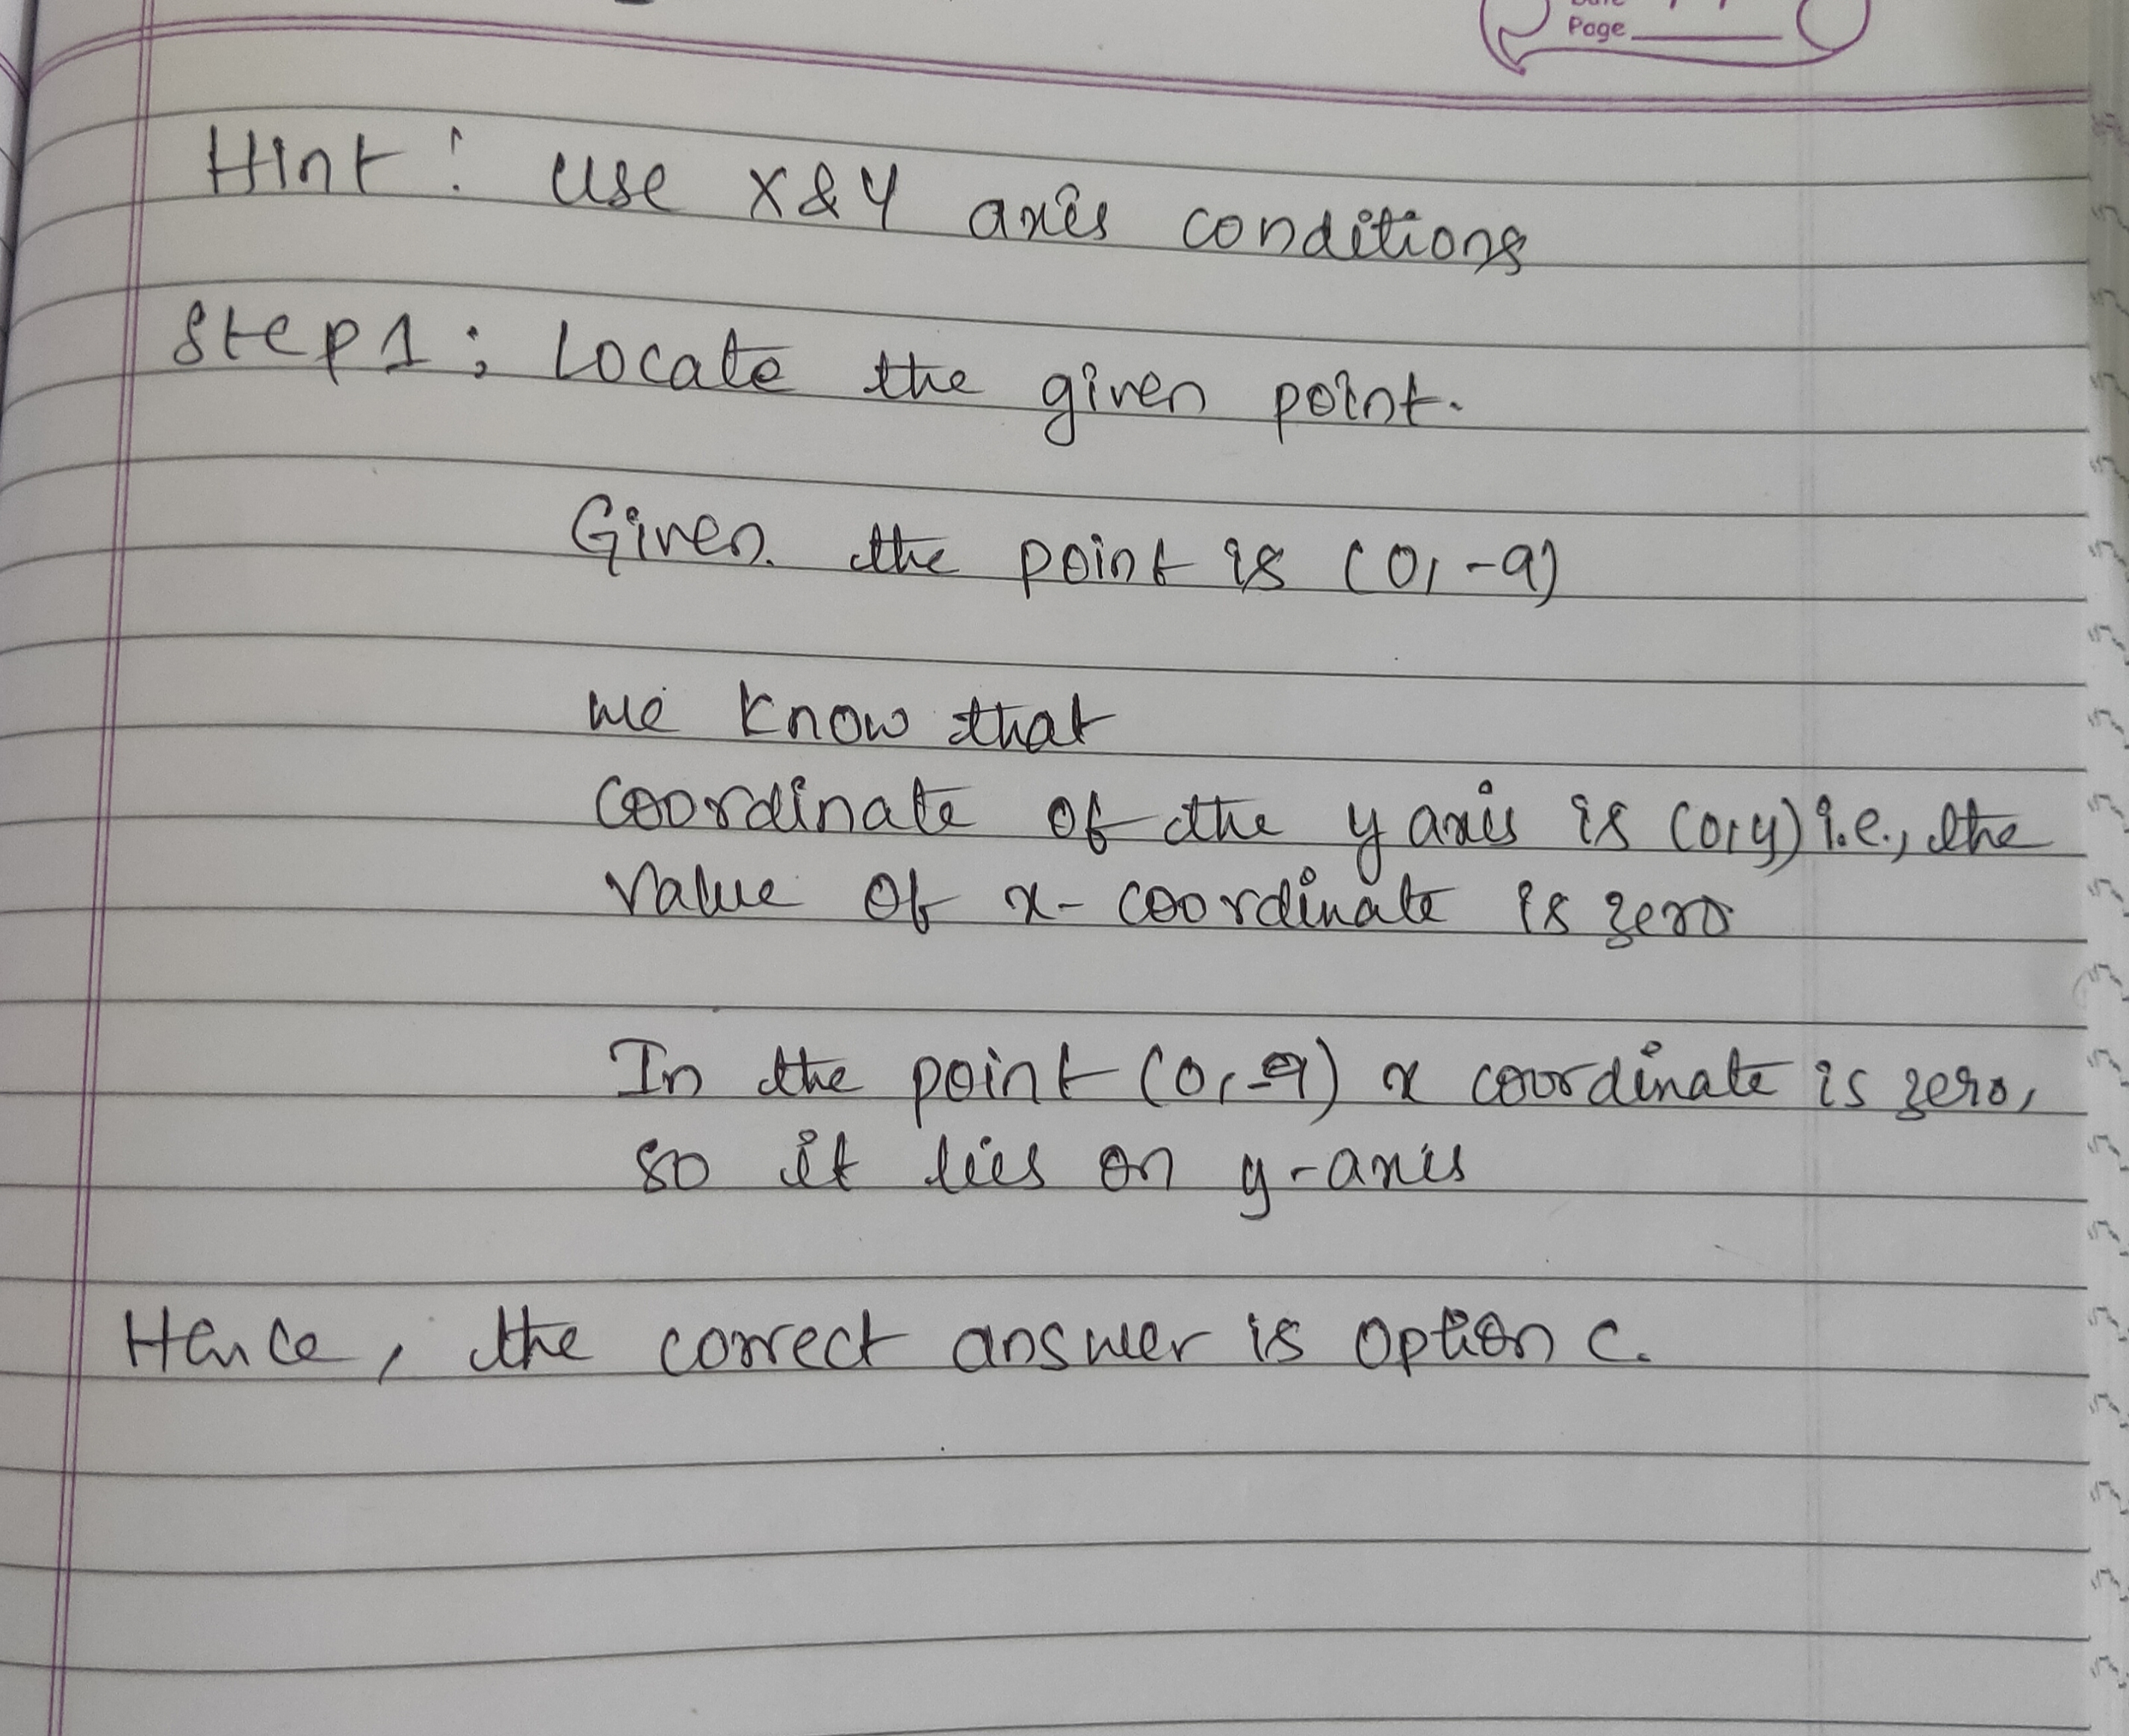 Page
Hint : use X & Y axis conditions
Step 1 : Locate the given point.
Given the point is (0, -9)
We know that
Coordinate of the y axis is (0,y) i.e., the
Value of x- coordinate is zero
In the point (0, -9) x coordinate is zero,
so it lies on y-axis
Hence, the correct answer is option c.